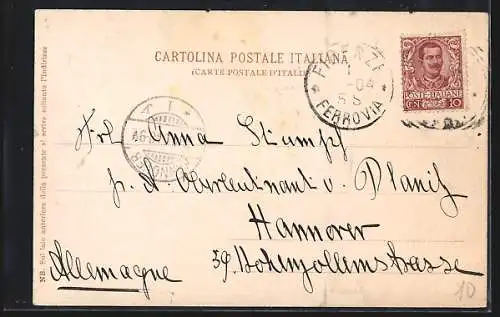 CARTOLINA POSTALE ITALIANA
(CARTE POSTALE D'ITALIE)
NB. Sul lato anteriore della presente si scrive soltanto l'indirizzo
FIRENZE
04
FERROVIA
POSTE ITALIANE
CENT 10
HANNOVER
Frl Anna Stumpf
p. A. Oberleutnant v. Planitz
Hannover
Allemagne
39. Hohenzollernstrasse
10